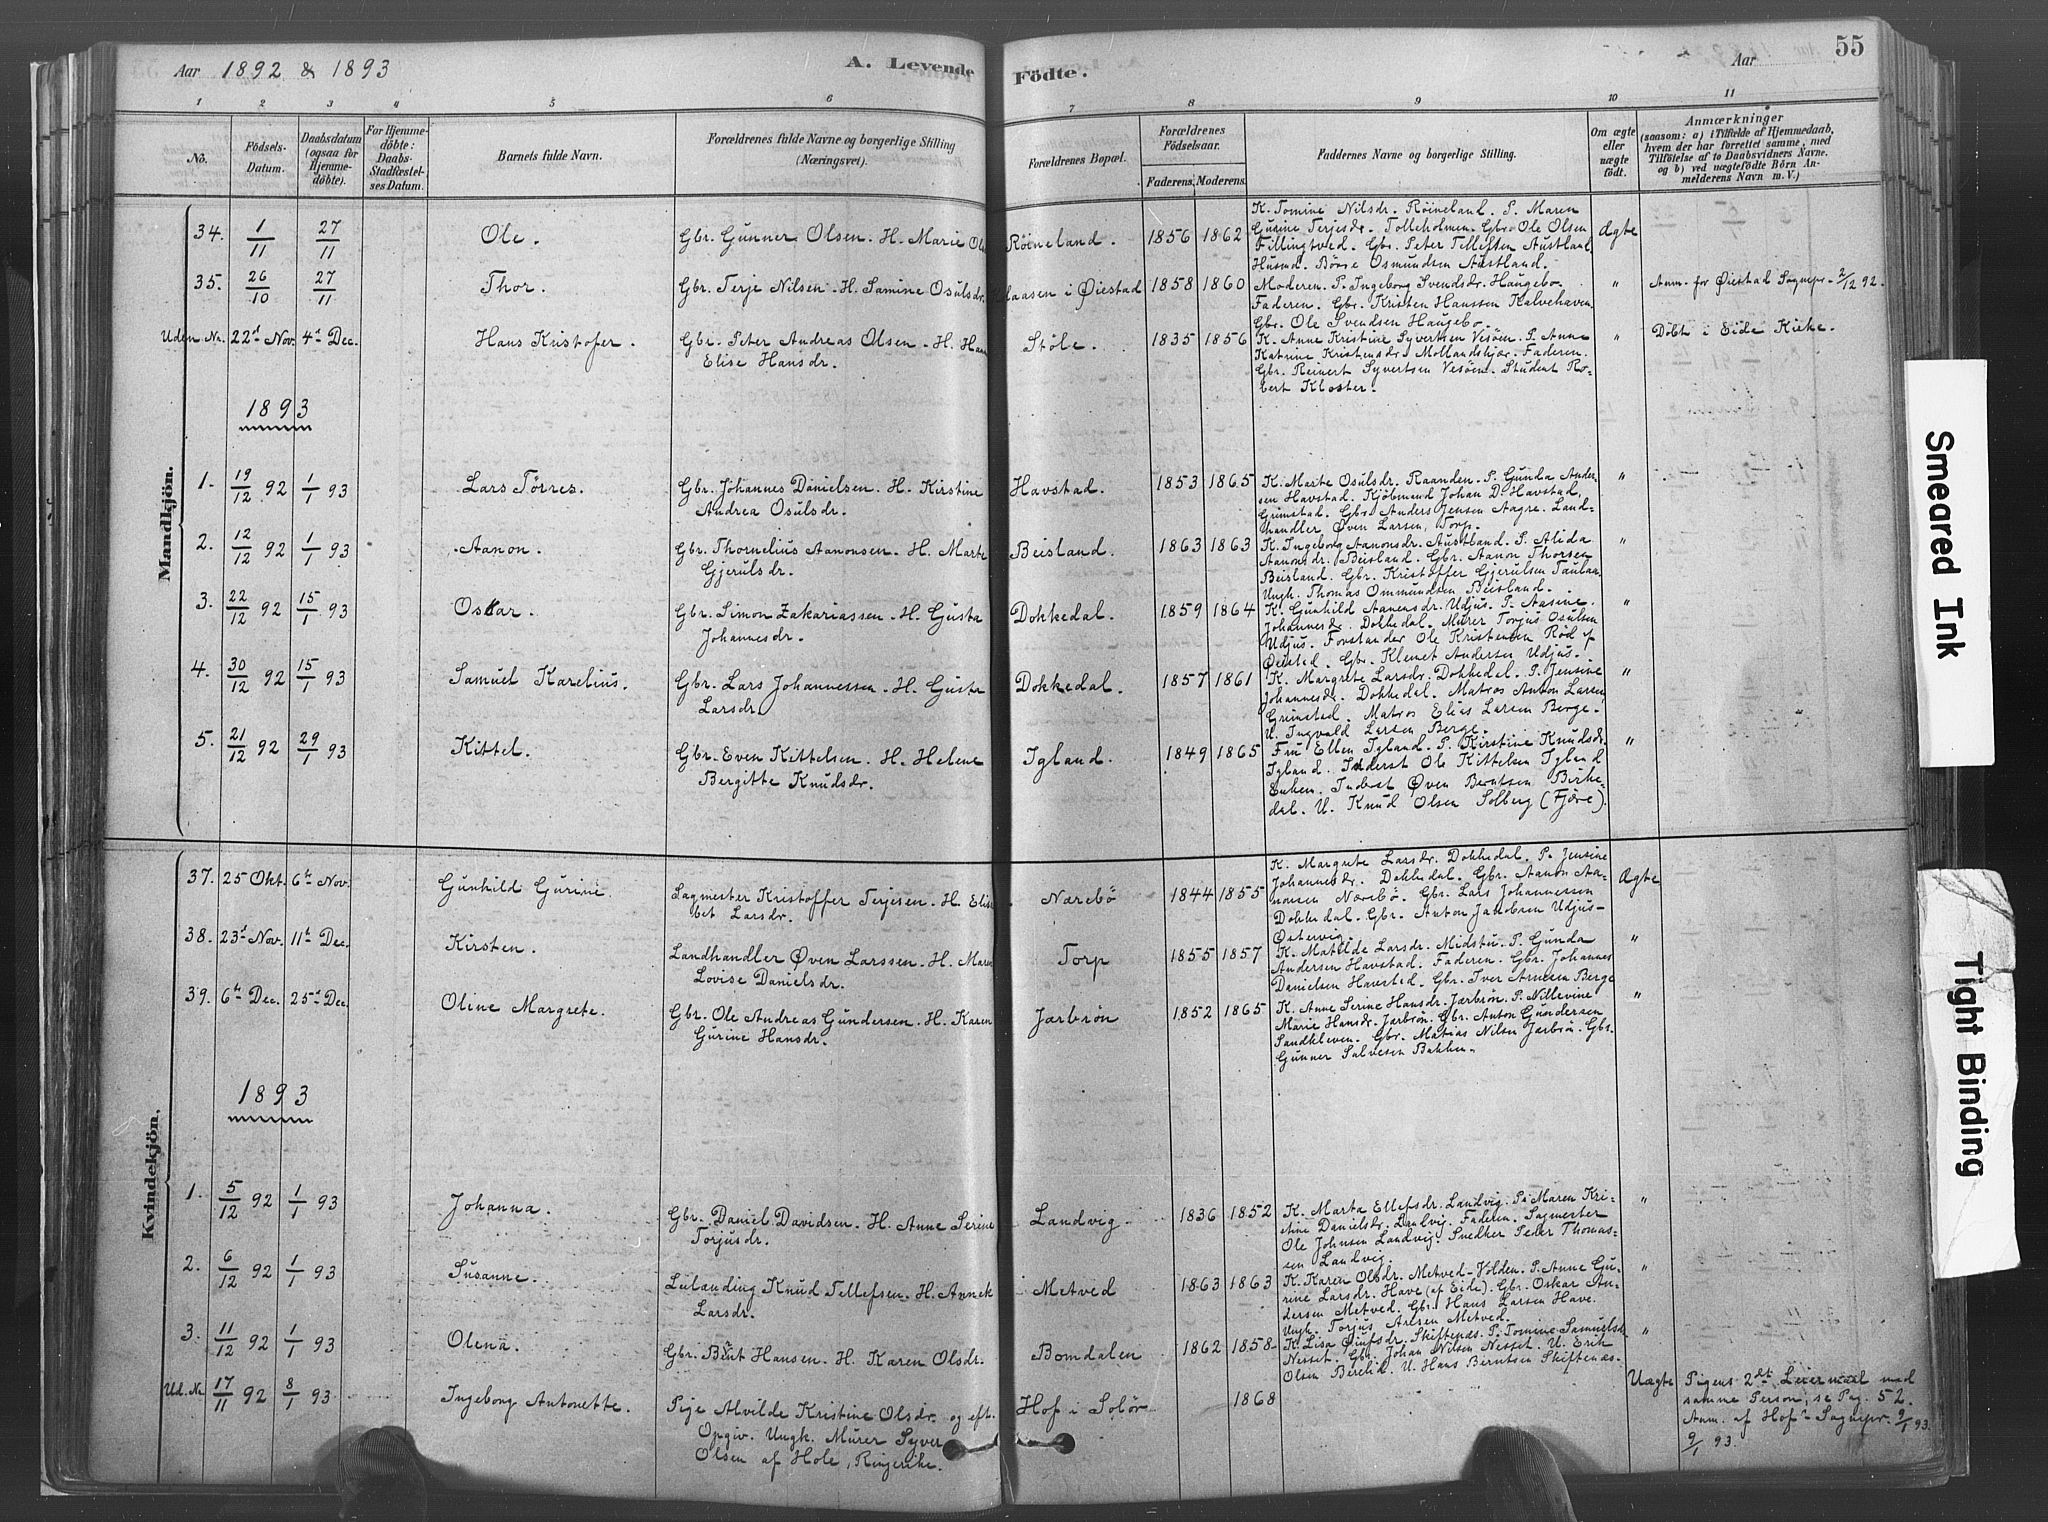 Aar 1892 & 1893
A. Levende
Födte.
Aar
55
1 2 3 4 5 6 7 8 9 10 11
No.
Födsels-
Datum.
Daabsdatum
(ogsaa for
Hjemme-
döbte).
For Hjemme-
döbte:
Daabs-
Stadfæstel-
ses Datum.
Barnets fulde Navn.
Forældrenes fulde Navne og borgerlige Stilling
(Næringsvei).
Forældrenes Bopæl.
Forældrenes
Födselsaar.
Faderens. Moderens.
Faddernes Navne og borgerlige Stilling.
Om ægte
eller
uægte
födt.
Anmærkninger
(saasom: a) i Tilfælde af Hjemmedaab,
hvem der har forrettet samme, med
Tilföielse af to Daabsvidners Navne,
og b) ved uægtefödte Börn An-
melderens Navn m. V.)
Mandkjön.
34. 1/11 27/11 Ole. Gbr. Gunner Olsen. H. Marie Ols Röineland. 1856 1862
K. Tomine Nilsdr. Röineland. P. Maren
Gurine Terjesdr. Tolleholmen. Gbr. Ole Olsen
Fillingtved. Gbr. Peter Tellefsen Austland.
Husmd. Börre Osmundsen Austland.
Ægte
35. 26/10 27/11 Thor. Gbr. Terje Nilsen. H. Samine Osulsdr. Klaasen i Øiestad 1858 1860
Moderen. P. Ingeborg Svendsdr. Haugebo.
Faderen. Gbr. Kristen Hanssen Kalvehaven.
Gbr. Ole Svendsen Haugebo.
" Anm. for Øiestad Sognepr. 2/12 92.
Uden Nr. 22d Nov. 4d Dec. Hans Kristofer. Gbr. Peter Andreas Olsen. H. Han
Elise Hansdr.
Støle. 1835 1856
K. Anne Kristine Syvertsen Vesöen. P. Anne
Katrine Kristensdr. Mollandskjær. Faderen.
Gbr. Reinert Syvertsen Vesöen. Student Ro-
bert Kloster.
" Döbt i Eide Kirke.
1893
1. 19/12 92 1/1 93 Lars Tørres. Gbr. Johannes Danielsen. H. Kirstine
Andrea Osulsdr.
Havstad. 1853 1865
K. Marte Osulsdr. Raanden. P. Gunda Ander-
sen Havstad. Kjöbmand Johan D. Havstad,
Grimstad. Gbr. Anders Jensen Aagre. Land-
handler Øven Larsen, Torp.
"
2. 12/12 92 1/1 93 Aanon. Gbr. Thornelius Aanonsen. H. Marte
Gjerulsdr.
Beisland. 1863 1863
K. Ingeborg Aanonsdr. Austland. P. Alida
Aanonsdr. Beisland. Gbr. Aanon Thorsen
Beisland. Gbr. Kristoffer Gjerulsen Taulaa.
Ungk. Thomas Ommundsen Beisland.
"
3. 22/12 92 15/1 93 Oskar. Gbr. Simon Zakariassen. H. Gusta
Johannesdr.
Dokkedal. 1859 1864
K. Gunhild Aanensdr. Udjus. P. Aasine
Johannesdr. Dokkedal. Murer Torjus Osulsen
Udjus. Forstander Ole Kristensen Röd i
Øiestad. Gbr. Klemet Andersen Udjus.
"
4. 30/12 92 15/1 93 Samuel Karelius. Gbr. Lars Johannessen. H. Gusta
Larsdr.
Dokkedal. 1857 1861
K. Margrete Larsdr. Dokkedal. P. Jensine
Johannesdr. Dokkedal. Matros Anton Larsen
Grimstad. Matros Elias Larsen Berge.
U. Ingvald Larsen Berge.
"
5. 21/12 92 29/1 93 Kittel. Gbr. Even Kittelsen. H. Helene
Bergitte Knudsdr.
Igland. 1849 1865
Fru Ellen Igland. P. Kirstine Knudsdr.
Igland. Inderst Ole Kittelsen Igland
Enken. Inderst Øven Berntsen Birke-
dal. U. Knud Olsen Solberg (Fjære).
"
Kvindekjön.
37. 25 Okt. 6te Nov. Gunhild Gurine. Sagmester Kristoffer Terjesen. H. Elisa
bet Larsdr.
Nærebö 1844 1855
K. Margrete Larsdr. Dokkedal. P. Jensine
Johannesdr. Dokkedal. Gbr. Aanon Aa-
nonsen Nærebö. Gbr. Lars Johannessen
Dokkedal. Gbr. Anton Jakobsen Udjus-
Östervig.
Ægte
38. 23d Nov. 11te Dec. Kirsten. Landhandler Øven Larssen. H. Maren
Lovise Danielsdr.
Torp 1855 1857
K. Matilde Larsdr. Midstu. P. Gunda
Andersen Havstad. Faderen. Gbr. Johannes
Danielsen Havstad. Gbr. Iver Arnesen Berge
"
39. 6te Dec. 25d Dec. Oline Margrete. Gbr. Ole Andreas Gundersen. H. Karen
Gurine Hansdr.
Jærbrön 1852 1865
K. Anne Serine Hansdr. Jærbrön. P. Nillevine
Marie Hansdr. Jærbrön. Gbr. Anton Gundersen
Sandkleven. Gbr. Matias Nilsen Jærbrö. Gbr.
Gunner Salvesen Bakken.
"
1893
1. 5/12 92 1/1 93 Johanna. Gbr. Daniel Davidsen. H. Anne Serine
Torjusdr.
Landvig. 1836 1852
K. Marta Ellefsdr. Landvig. P. Maren Kri-
stine Danielsdr. Landvig. Faderen. Sagmester
Ole Johnsen Landvig. Snedker Peder Thomas-
sen Landvig.
"
2. 6/12 92 1/1 93 Susanne. Leilænding Knud Tellefsen. H. Annek
Larsdr.
Metved 1863 1863
K. Karen Olsdr. Metved-Volden. P. Anne Gu-
rine Larsdr. Have (af Eide). Gbr. Oskar An-
dersen Metved. Gbr. Hans Larsen Have.
Ungk. Torjus Axlsen Metved.
"
3. 11/12 92 1/1 93 Olena. Gbr. Bent Hansen. H. Karen Olsdr. Bomdalen 1862 1858
K. Lisa Olufsdr. Skiftenæs. P. Tomine Samuelsdr
Nesset. Gbr. Johan Nilsen Nesset. U. Erik
Olsen Berelid. U. Hans Berntsen Skiftenæs.
"
Ud. Nr. 17/11 92 8/1 93 Ingeborg Antonette. Pige Alvilde Kristine Olsdr. og eft.
Opgiv. Ungk. Murer Syver
Olsen af Hole, Ringerike.
Hof i Solör 1868
Uægte
Pigens 2det Leiermaal med
samme Person, se Pag. 52.
Anm. af Hofs Sognepr. 9/1 93.
9/1 93.
Smeared Ink
Tight Binding